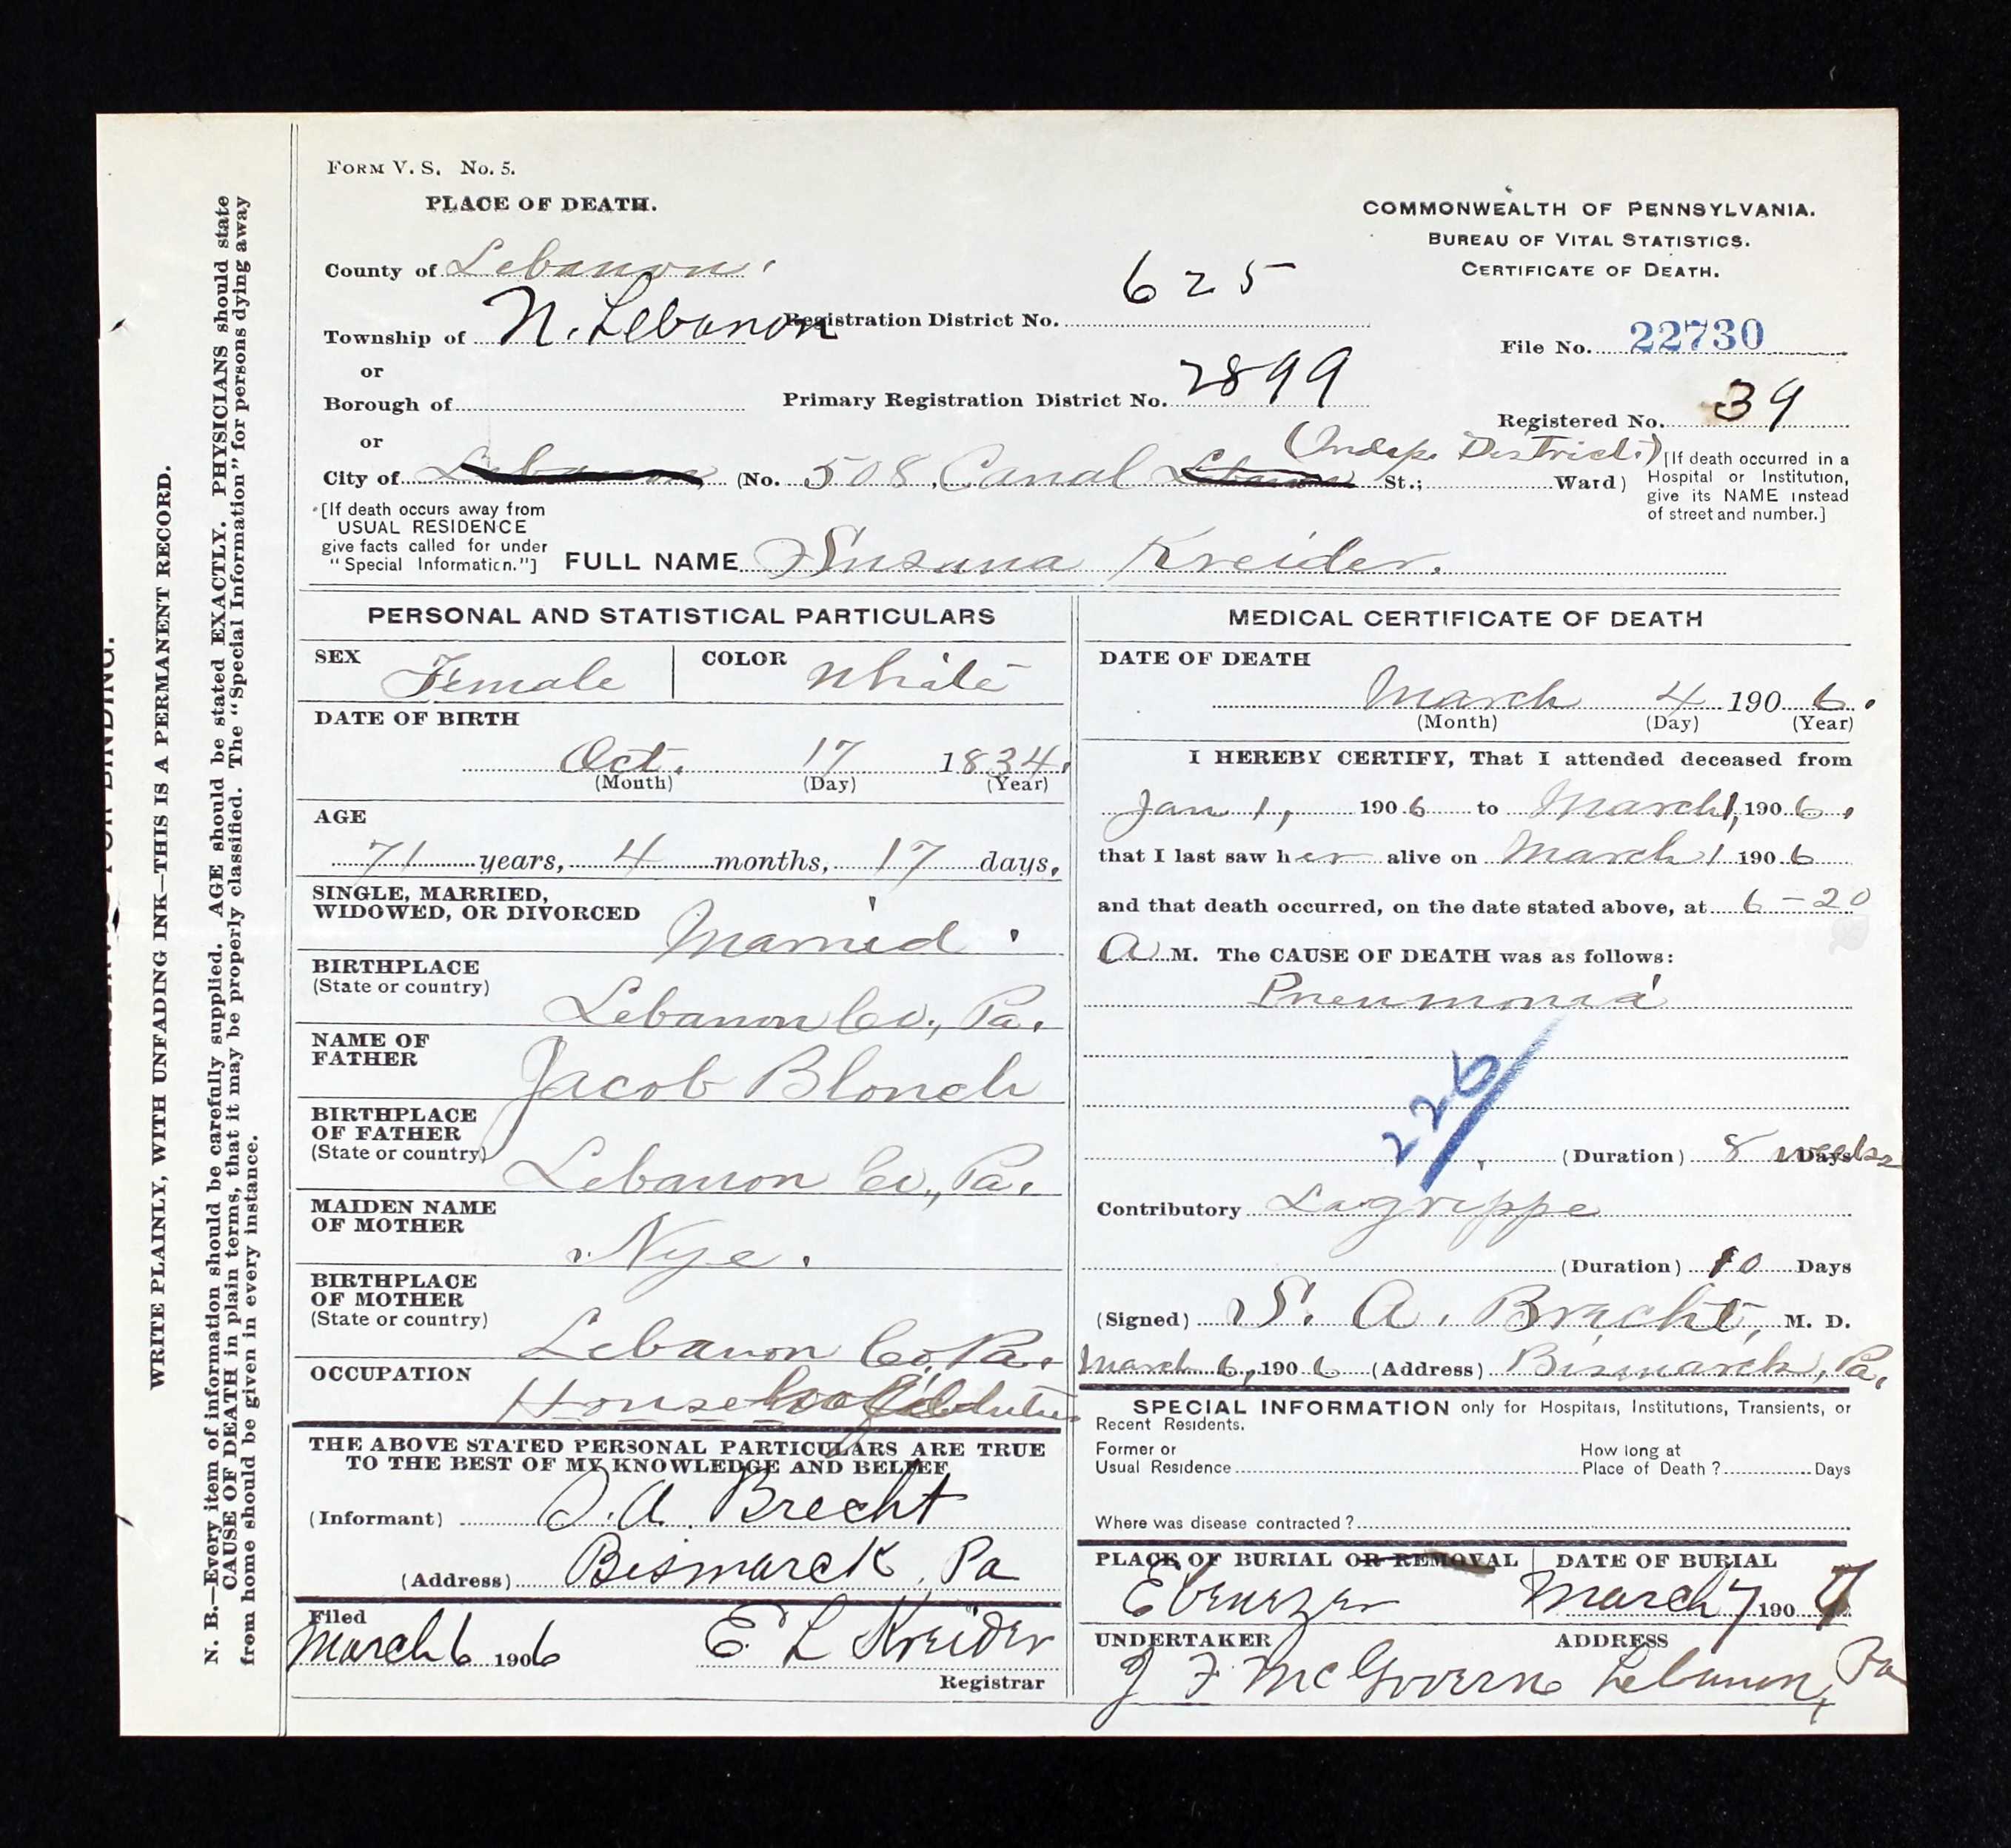 FORM V. S. No. 5.
PLACE OF DEATH.
COMMONWEALTH OF PENNSYLVANIA.
BUREAU OF VITAL STATISTICS.
CERTIFICATE OF DEATH.
County of Lebanon
Township of N. Lebanon
Registration District No. 625
File No. 22730
or
Borough of
Primary Registration District No. 2899
Registered No. 39
or
(Indep. District)
City of Lebanon (No. 508 Canal St.; Ward)
[If death occurred in a Hospital or Institution, give its NAME instead of street and number.]
[If death occurs away from USUAL RESIDENCE give facts called for under "Special Information."]
FULL NAME Susana Kreider.
PERSONAL AND STATISTICAL PARTICULARS
SEX Female
COLOR White
DATE OF BIRTH
Oct. 17 1834.
(Month) (Day) (Year)
AGE
71 years, 4 months, 17 days.
SINGLE, MARRIED,
WIDOWED, OR DIVORCED
Married.
BIRTHPLACE
(State or country)
Lebanon Co., Pa.
NAME OF
FATHER
Jacob Blonch
BIRTHPLACE
OF FATHER
(State or country)
Lebanon Co., Pa.
MAIDEN NAME
OF MOTHER
Nye.
BIRTHPLACE
OF MOTHER
(State or country)
Lebanon Co., Pa.
OCCUPATION
THE ABOVE STATED PERSONAL PARTICULARS ARE TRUE
TO THE BEST OF MY KNOWLEDGE AND BELIEF
(Informant) S. A. Brecht
(Address) Bismarck, Pa
Filed
March 6 1906 E L Kreider
Registrar
MEDICAL CERTIFICATE OF DEATH
DATE OF DEATH
March 4 1906.
(Month) (Day) (Year)
I HEREBY CERTIFY, That I attended deceased from
Jan 1, 1906 to March 1, 1906.
that I last saw her alive on March 1 1906
and that death occurred, on the date stated above, at 6-20
A M. The CAUSE OF DEATH was as follows:
Pneumonia
226
(Duration) 8 weeks Days
Contributory Lagrippe
(Duration) 10 Days
(Signed) S. A. Brecht, M. D.
March 6, 1906 (Address) Bismarck, Pa.
SPECIAL INFORMATION only for Hospitals, Institutions, Transients, or
Recent Residents.
Former or
Usual Residence
How long at
Place of Death? Days
Where was disease contracted?
PLACE OF BURIAL OR REMOVAL
Ebenezer
DATE OF BURIAL
March 7 190
UNDERTAKER
J F McGovern
ADDRESS
Lebanon, Pa
WRITE PLAINLY, WITH UNFADING INK—THIS IS A PERMANENT RECORD.
N. B.—Every item of information should be carefully supplied. AGE should be stated EXACTLY. PHYSICIANS should state
CAUSE OF DEATH in plain terms, that it may be properly classified. The "Special Information" for persons dying away
from home should be given in every instance.